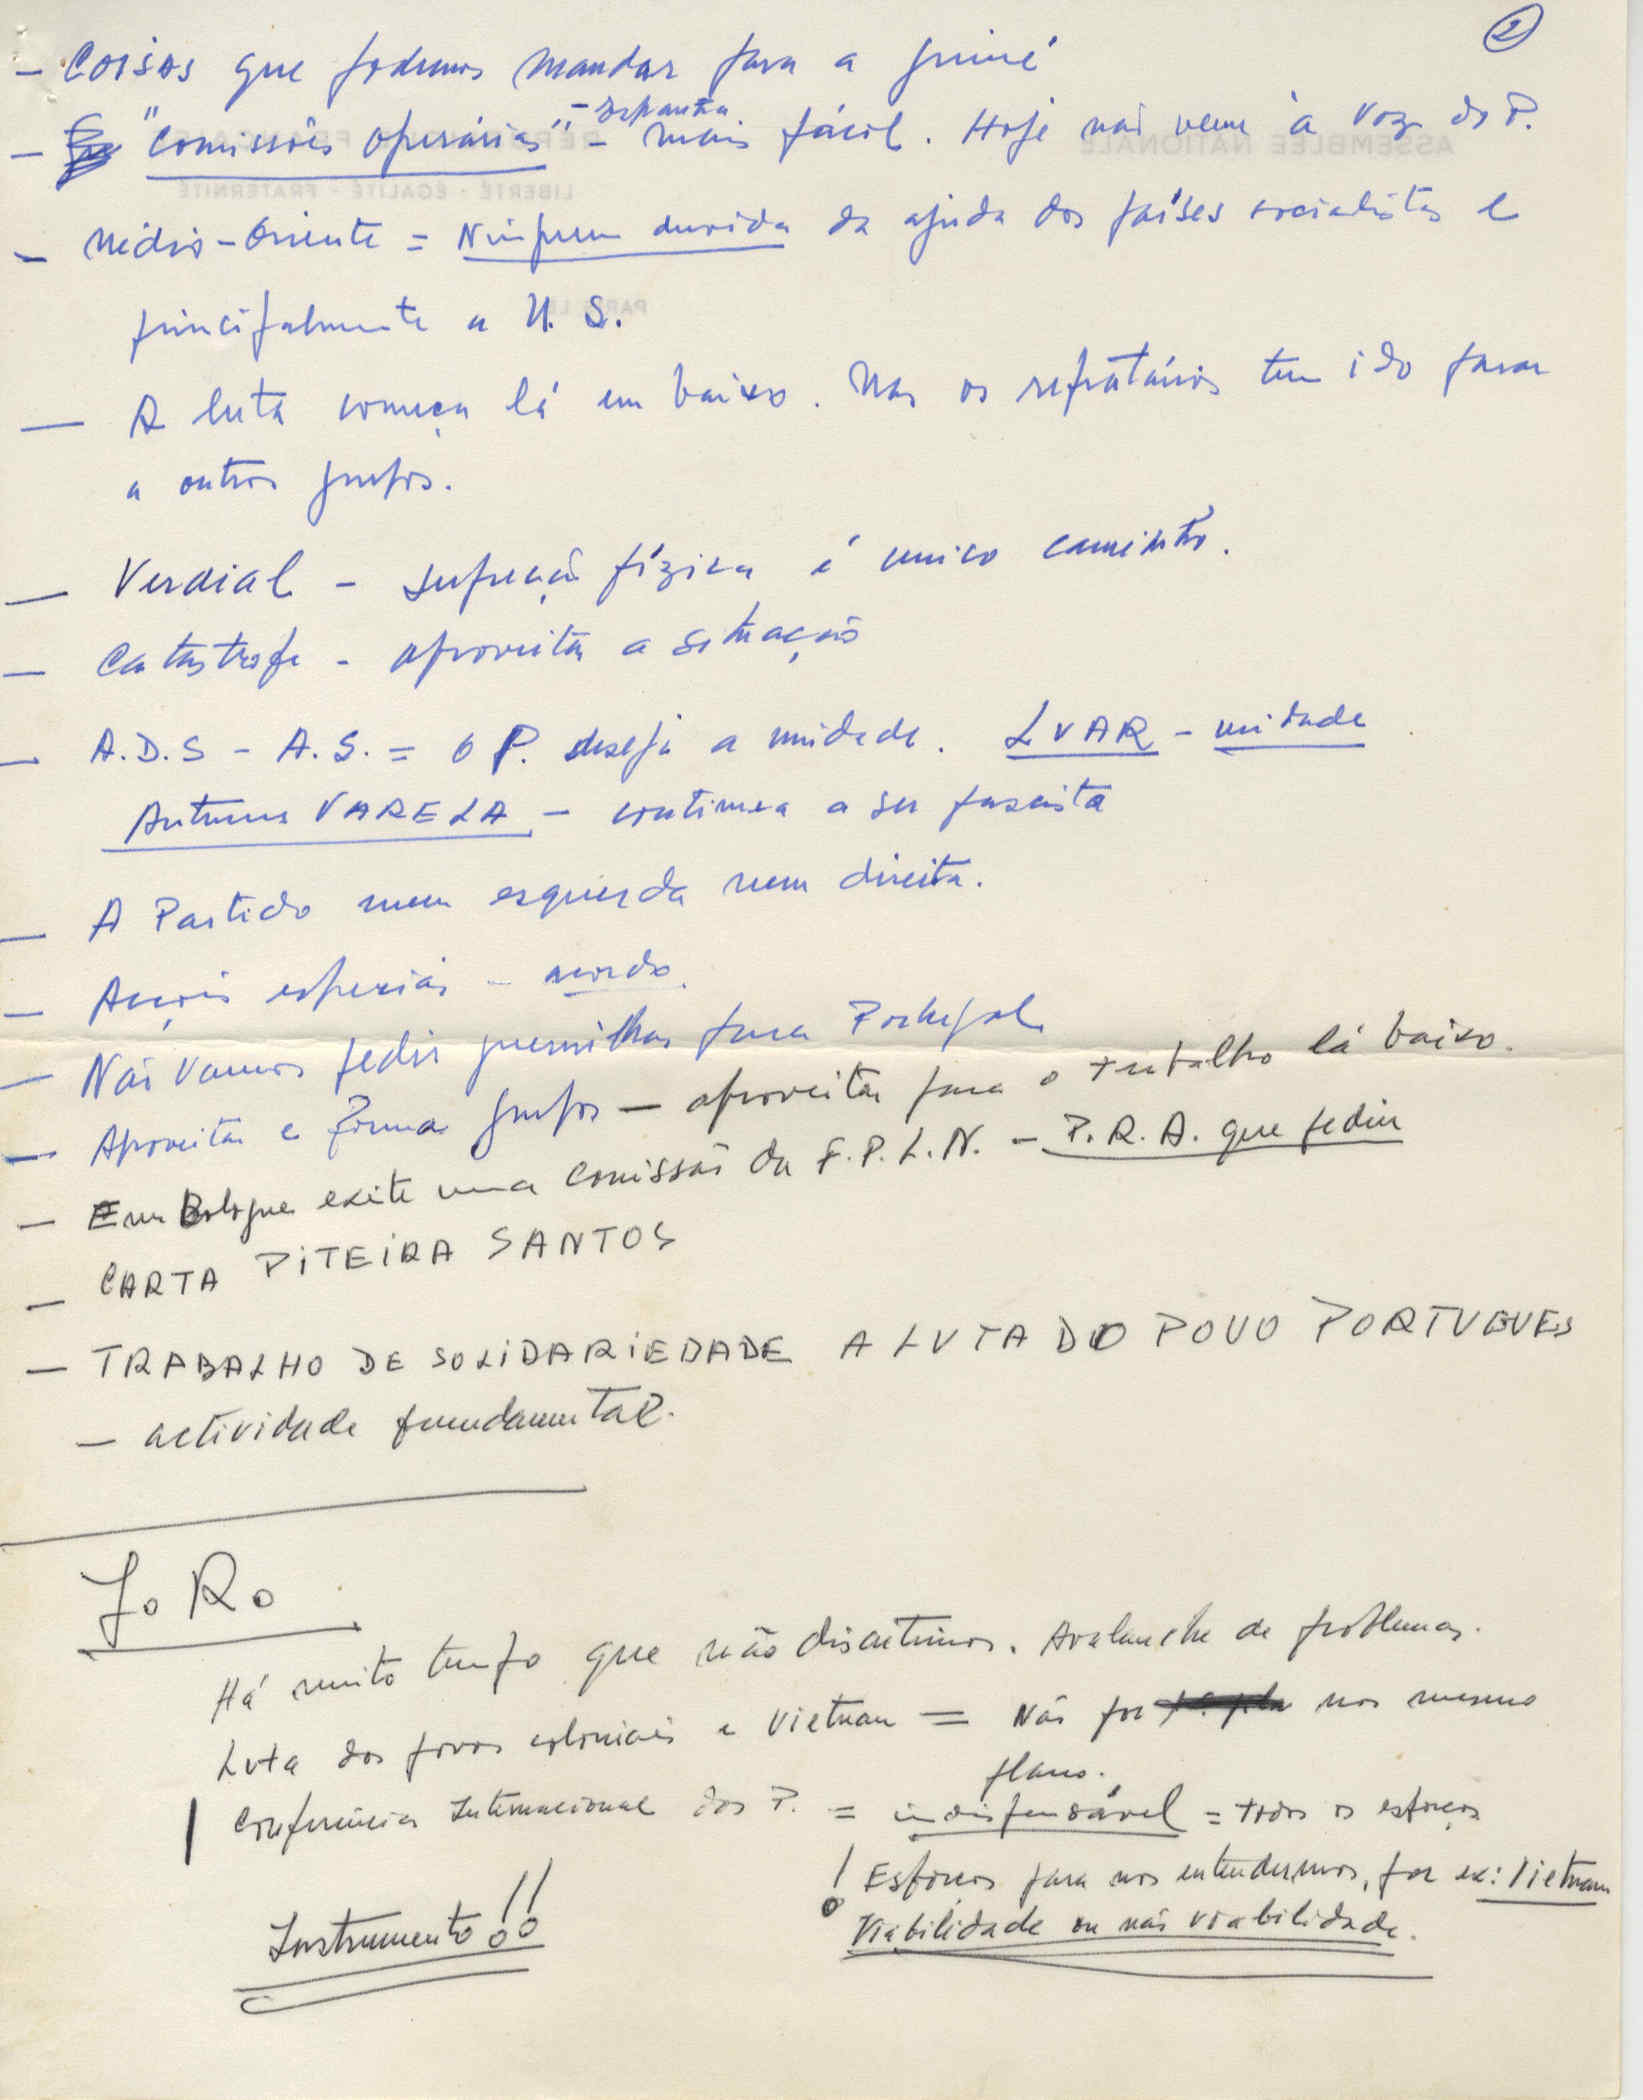 2
- Coisas que podemos mandar para a Guiné
- "Comissões operárias" - Espanha - mais fácil. Hoje não vem à voz do P.
- Médio-Oriente = Ninguem duvida da ajuda dos países socialistas e
principalmente a U. S.
- A luta começa lá em baixo. Mas os refratários tem ido parar
a outros grupos.
- Verdial - supressão física é unico caminho.
- Catastrofe - aproveitar a situação
- A.D.S - A.S. = O P. deseja a unidade. LUAR - unidade
VARELA - continua a ser fascista
- A Partido nem esquerda nem direita.
- Acções especiais - acordo.
- Não vamos pedir guerrilhas para Portugal
- Aproveitar e formar grupos - aproveitar para o trabalho lá baixo.
- Em Bologne exite uma comissão da F.P.L.N. - P.R.A. que pediu
- CARTA PITEIRA SANTOS
- TRABALHO DE SOLIDARIEDADE A LUTA DO POVO PORTUGUES
- actividade fundamental.
Jo Ro
Há muito tempo que não discutimos. Avalanche de problemas.
Luta dos povos coloniais e Vietnam = Não por nos mesmo
plano.
Conferência Internacional dos P. = indispensável = todos os esforços
! Esforços para nos entendermos, por ex: Vietnam
Viabilidade ou não viabilidade.
Instrumento!!